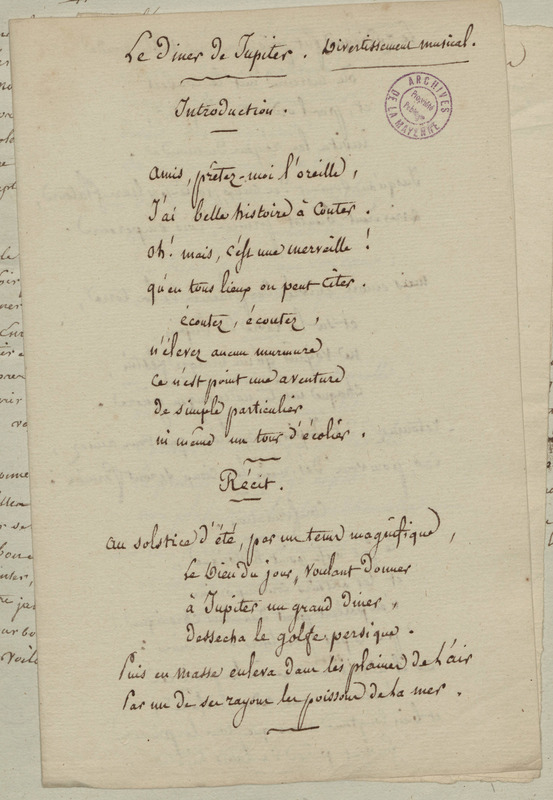 Le Diner de Jupiter. Divertissement musical.
ARCHIVES DE LA MAYENNE
Propriété Publique
Introduction.
amis, prêtez-moi l'oreille,
J'ai belle histoire à conter.
oh! mais, c'est une merveille!
qu'en tous lieux on peut citer.
écoutez, écoutez,
n'élevez aucun murmure
ce n'est point une aventure
de simple particulier
ni même un tour d'écolier.
Récit.
au solstice d'été, par un tems magnifique,
Le Dieu du jour, voulant donner
à Jupiter un grand diner,
dessecha le golfe persique.
Puis en masse enleva dans les plaines de l'air
Par un de ses rayons les poissons de la mer.